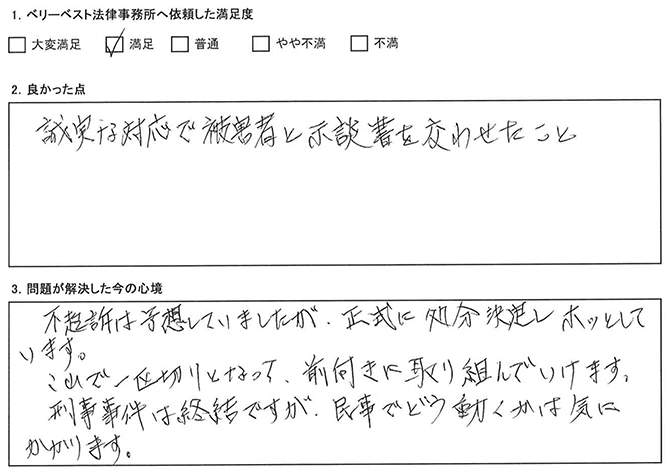 1. ベリーベスト法律事務所へ依頼した満足度
大変満足 満足 普通 やや不満 不満
2. 良かった点
誠実な対応で被害者と示談書を交わせたこと
3. 問題が解決した今の心境
不起訴は予想していましたが、正式に処分決定しホッとして
います。
これで一区切りとなって、前付きに取り組んでいけます。
刑事事件は終結ですが、民事でどう動くかは気に
かかります。